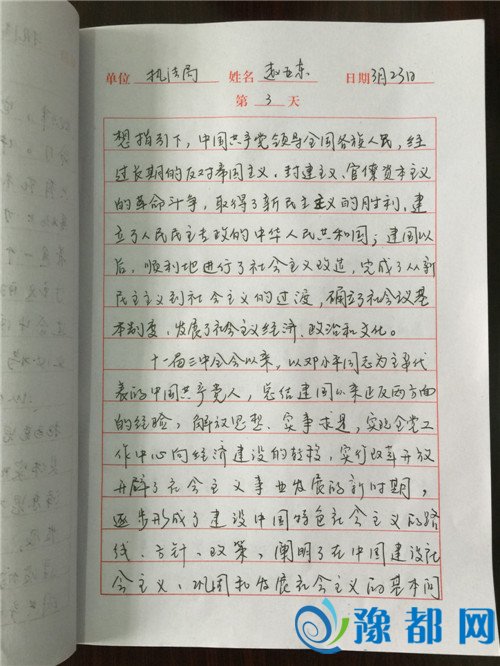 单位 执法局 姓名 赵亚东 日期 3月23日
第 3 天
想指引下，中国共产党领导全国各族人民，经
过长期的反对帝国主义、封建主义、官僚资本主义
的革命斗争，取得了新民主主义的胜利，建
立了人民民主专政的中华人民共和国；建国以
后，顺利地进行了社会主义改造，完成了从新
民主主义到社会主义的过渡，确立了社会议基
本制度，发展了社会主义经济、政治和文化。
十一届三中全会以来，以邓小平同志为主要代
表的中国共产党人，总结建国以来正反两方面
的经验，解放思想，实事求是，实现全党工
作中心向经济建设的转移，实行改革开放
开辟了社会主义事业发展的新时期，
逐步形成了建设中国特色社会主义的路
线、方针、政策，阐明了在中国建设社
会主义、巩固和发展社会主义的基本问
豫都网